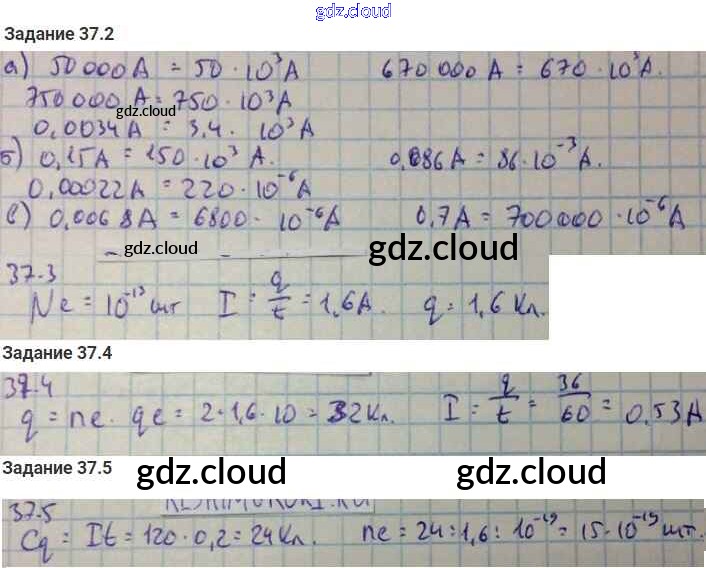 gdz.cloud
Задание 37.2
а) 50 000 А = 50 · 10³ А 670 000 А = 670 · 10³ А.
750 000 А = 750 · 10³ А
gdz.cloud
0,0034 А = 3,4 · 10³ А
б) 0,15 А = 150 · 10³ А. 0,086 А = 86 · 10⁻³ А.
0,00022 А = 220 · 10⁻⁶ А
в) 0,0068 А = 6800 · 10⁻⁶ А 0,7 А = 700000 · 10⁻⁶ А
gdz.cloud gdz.cloud
37.3
Ne = 10⁻¹³ шт I = q/t = 1,6 А. q = 1,6 Кл.
Задание 37.4
37.4
q = ne · qe = 2 · 1,6 · 10 = 32 Кл. I = q/t = 36/60 = 0,53 А
Задание 37.5
gdz.cloud gdz.cloud
37.5
Cq = It = 120 · 0,2 = 24 Кл. ne = 24 : 1,6 : 10⁻¹⁹ = 15 · 10⁻¹⁹ шт.